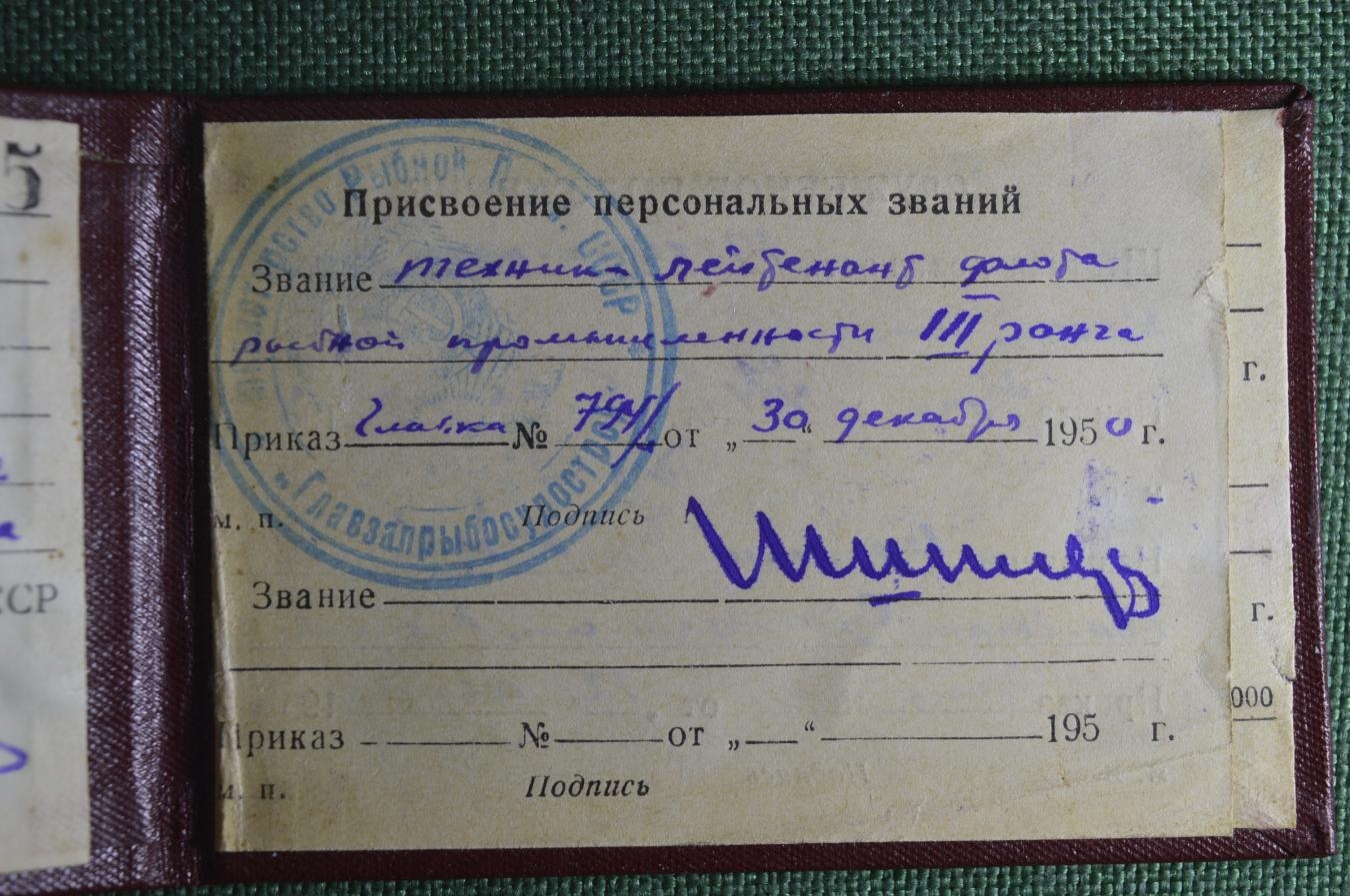 5
ССР
Министерство Рыбной П СССР
„Главзапрыбосудострой
Присвоение персональных званий
Звание техник-лейтенант флота
рыбной промышленности III ранга
Приказ Главка № от „30“ декабря 1950 г.
м. п. Подпись
Звание
Приказ № от „ “ 195 г.
м. п. Подпись
г.
г.
000